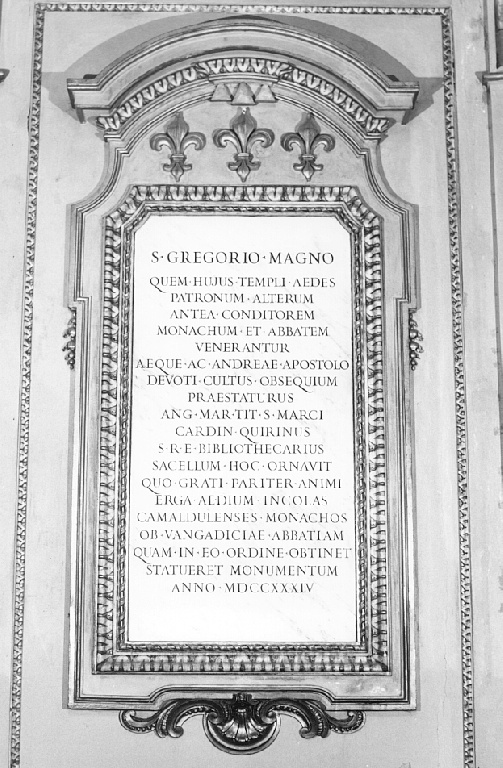 S·GREGORIO·MAGNO
QUEM·HUJUS·TEMPLI·AEDES
PATRONUM·ALTERUM
ANTEA·CONDITOREM
MONACHUM·ET·ABBATEM
VENERANTUR
AEQUE·AC·ANDREAE·APOSTOLO
DEVOTI·CULTUS·OBSEQUIUM
PRAESTATURUS
ANG·MAR·TIT·S·MARCI
CARDIN·QUIRINUS
S·R·E·BIBLIOTHECARIUS
SACELLUM·HOC·ORNAVIT
QUO·GRATI·PARITER·ANIMI
ERGA·AEDIUM·INCOLAS
CAMALDULENSES·MONACHOS
OB·VANGADICIAE·ABBATIAM
QUAM·IN·EO·ORDINE·OBTINET
STATUERET·MONUMENTUM
ANNO·MDCCXXXIV